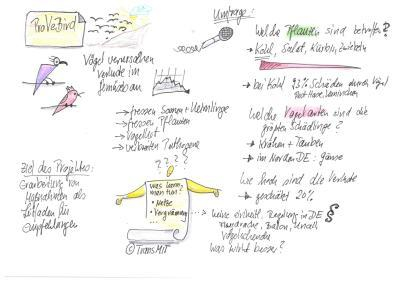 ProVeBird
Vögel verursachen
Verluste im
Gemüsebau an
→ fressen Samen + Keimlinge
→ fressen Pflanzen
→ Vogelkot
→ verbreiten Pathogene
Ziel des Projektes:
Erarbeitung von
Maßnahmen als
Leitfaden für
Empfehlungen
? ? ? ?
Was kann
man tun?
• Netze
• Vergrämung
© TransMIT
Umfrage:
Welche Pflanzen sind betroffen?
→ Kohl, Salat, Kürbis, Zwiebeln
→ bei Kohl 93% Schäden durch Vögel
Welche Vogelarten sind die
größten Schädlinge?
→ Krähen + Tauben
→ im Norden DE: Gänse
Wie hoch sind die Verluste
→ geschätzt 20%
→ keine einheitl. Regelung in DE
Vogelscheuche
Was wirkt besser?